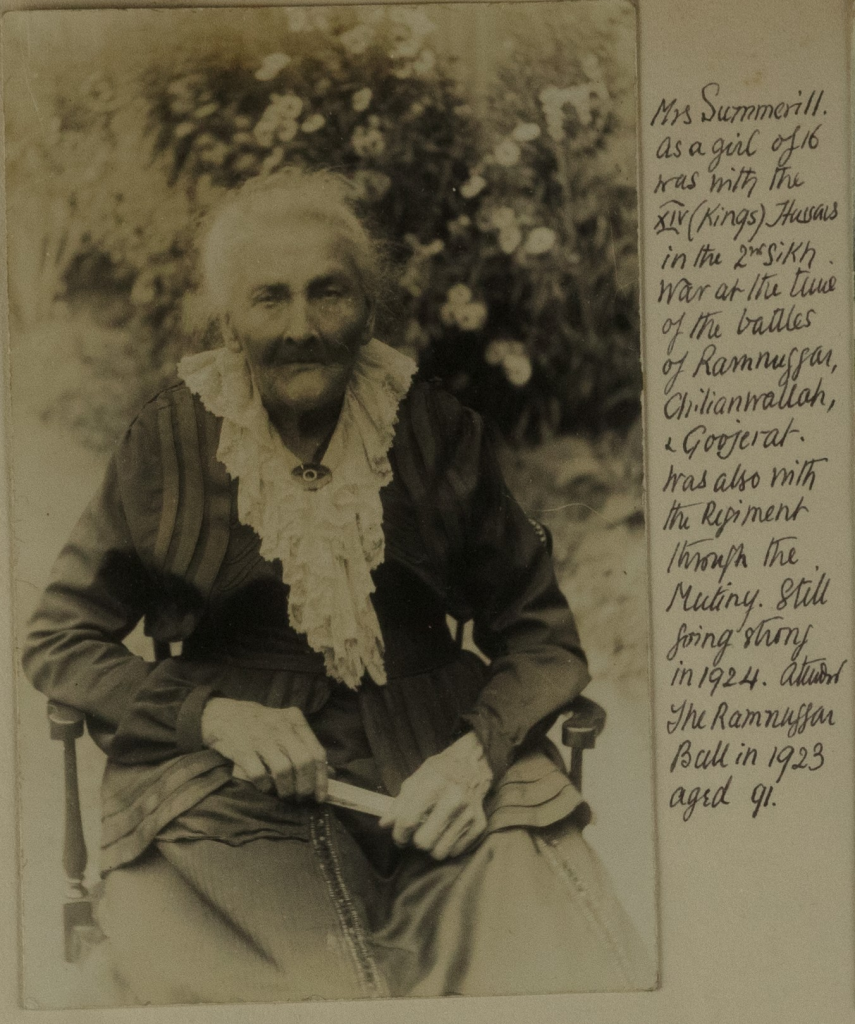 Mrs Summerill.
as a girl of 16
was with the
XIV (Kings) Hussars
in the 2nd Sikh
War at the time
of the battles
of Ramnuggar,
Chilianwallah,
& Goojerat.
Was also with
the Regiment
through the
Mutiny. Still
going strong
in 1924. Attended
The Ramnuggar
Ball in 1923
aged 91.